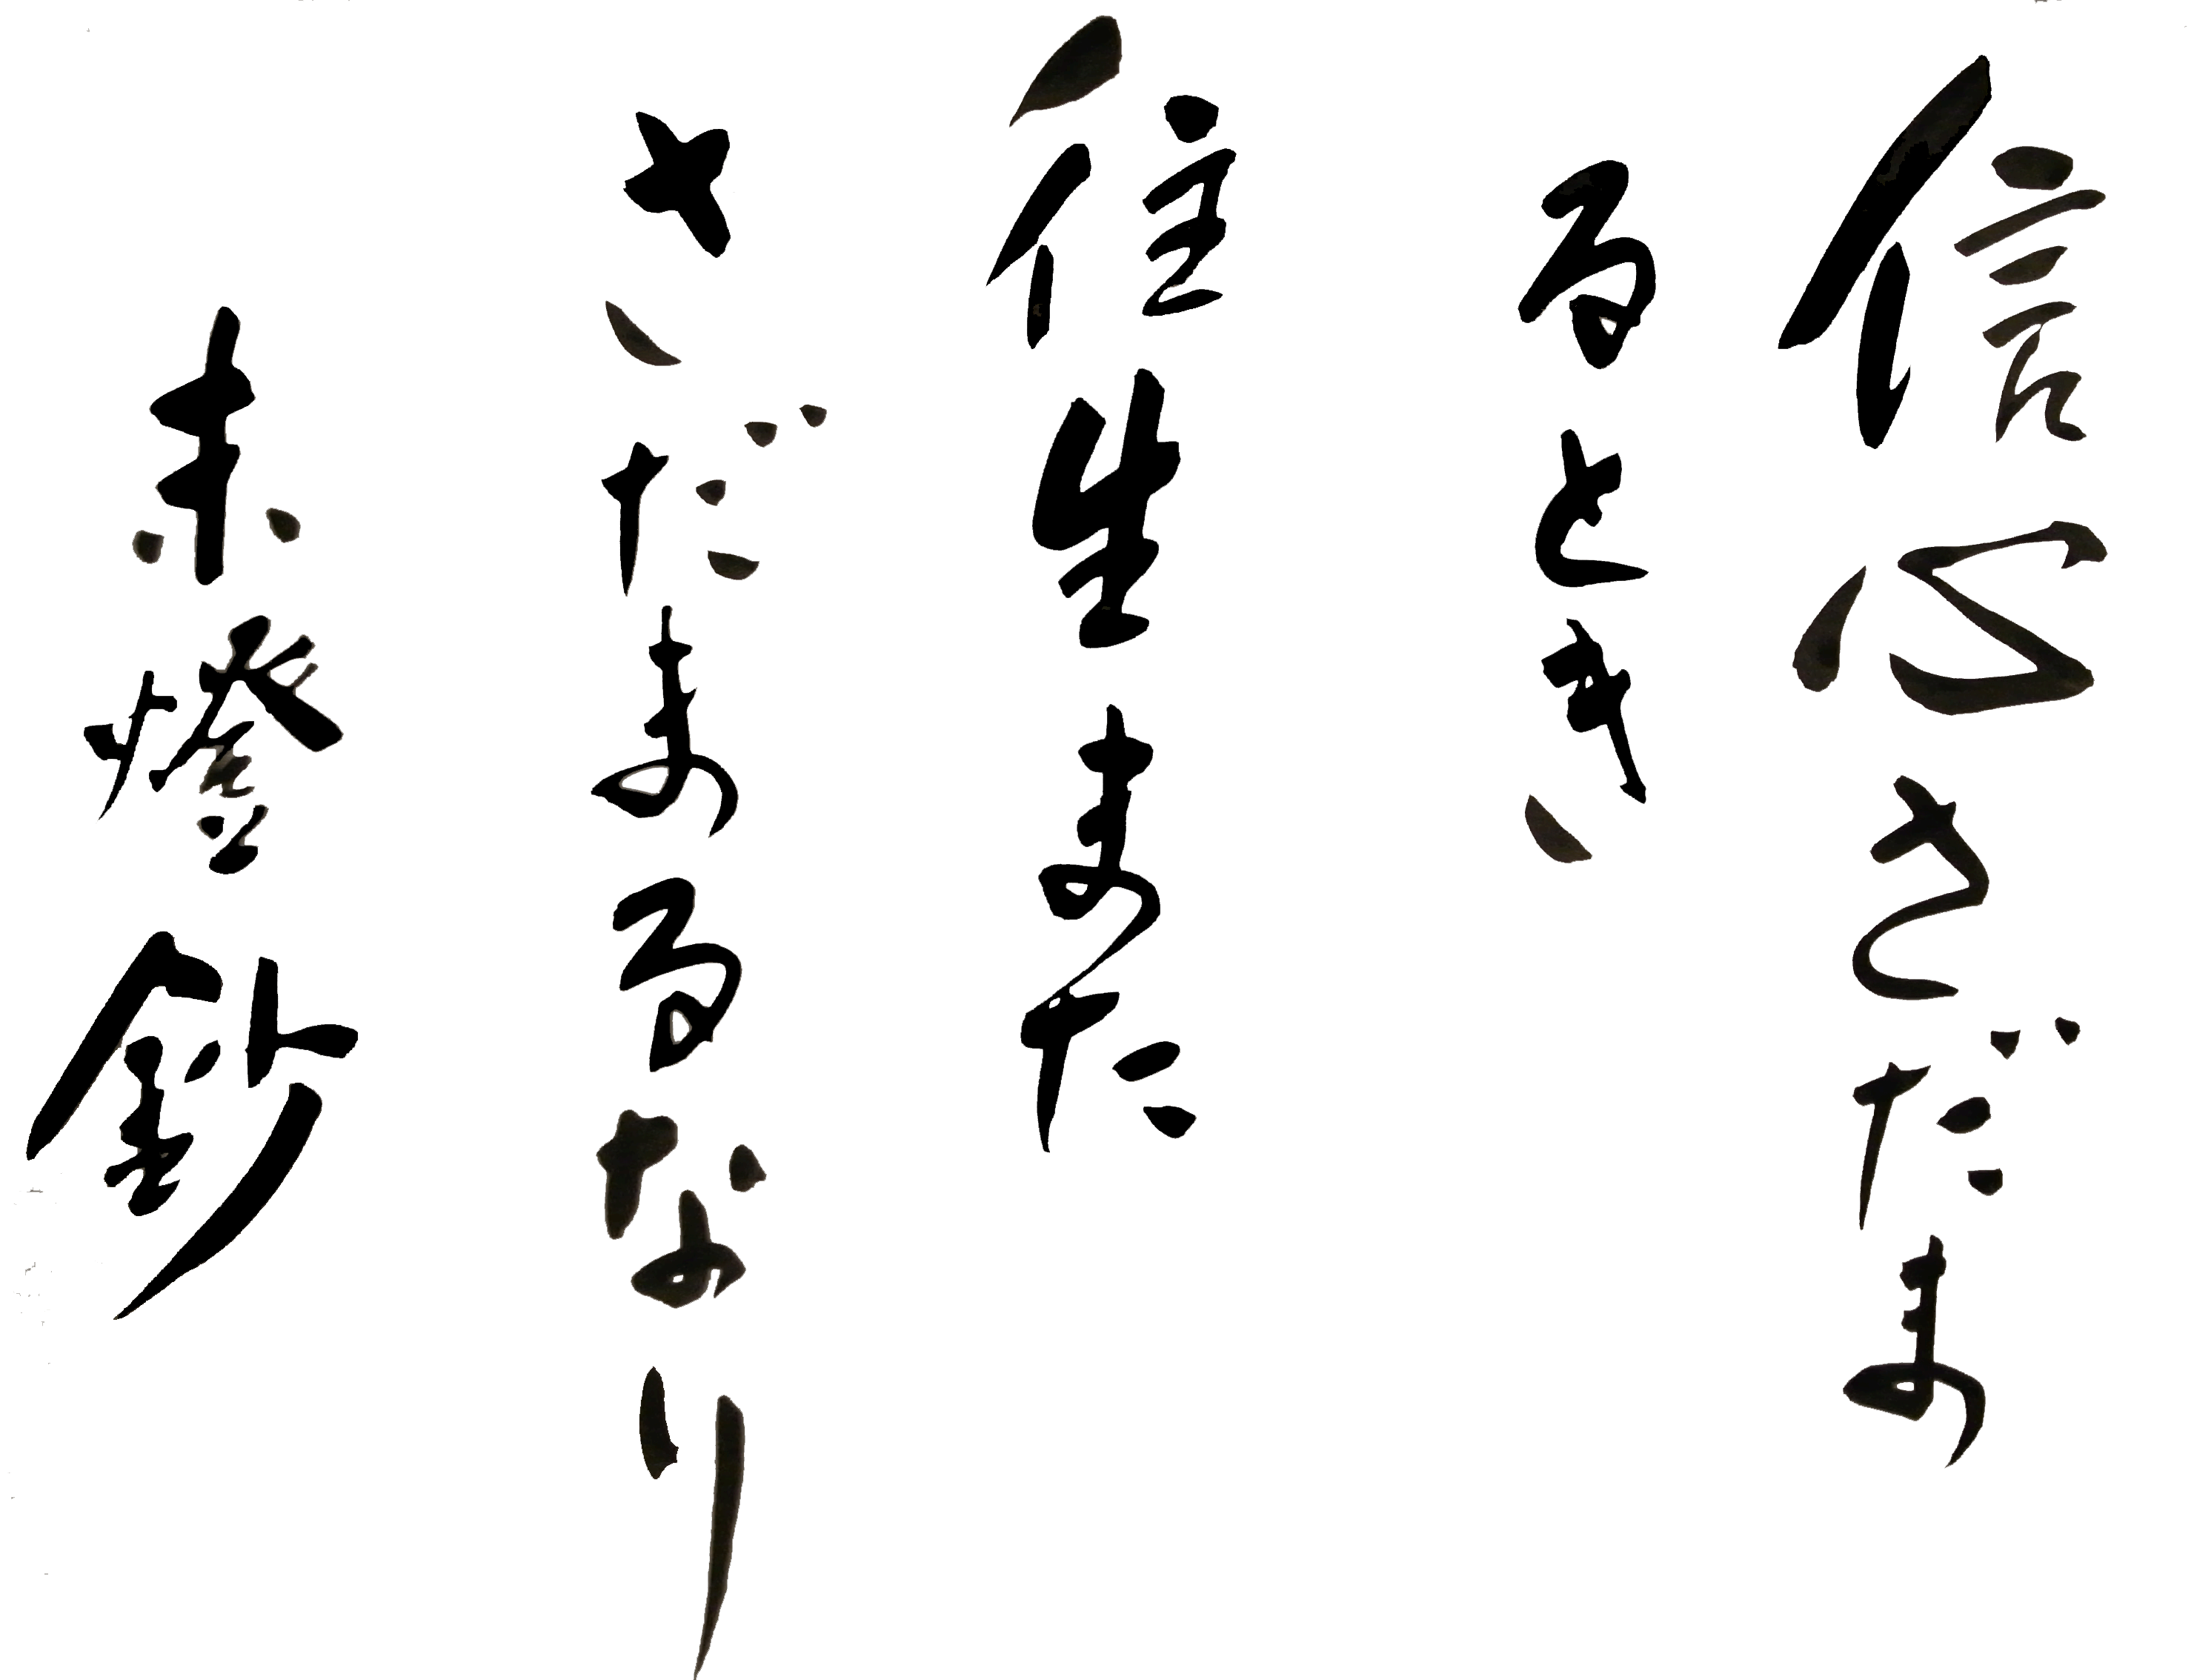 信心さだま
るとき
往生また
さだまるなり
末燈鈔